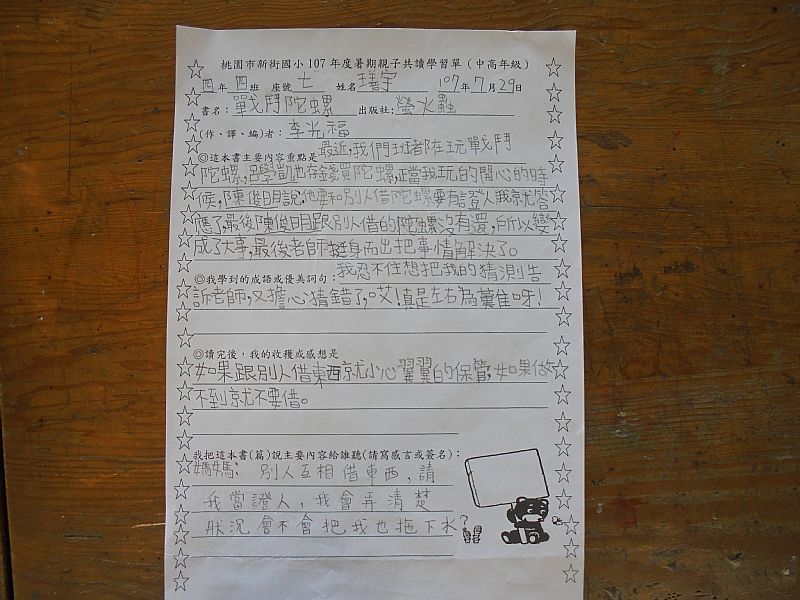 桃園市新街國小107年度暑期親子共讀學習單(中高年級)
四年四班 座號七 姓名 宇 107年7月29日
書名:戰鬥陀螺 出版社:螢火蟲
(作、譯、編)者:李光福
◎這本書主要內容重點是 最近,我們班都在玩戰鬥
陀螺,呂學凱也存錢買陀螺,正當我玩的開心的時
候,陳俊明說:他要和別人借陀螺要有證人,我就答
應了,最後陳俊明跟別人借的陀螺沒有還,所以變
成了大事,最後老師挺身而出把事情解決了。
◎我學到的成語或優美詞句:我忍不住想把我的猜測告
訴老師,又擔心猜錯了,哎!真是左右為難呀!
◎讀完後,我的收穫或感想是
如果跟別人借東西就小心翼翼的保管,如果做
不到就不要借。
我把這本書(篇)說主要內容給誰聽(請寫感言或簽名):
媽媽:別人互相借東西,請
我當證人,我會弄清楚
狀況會不會把我也拖下水?